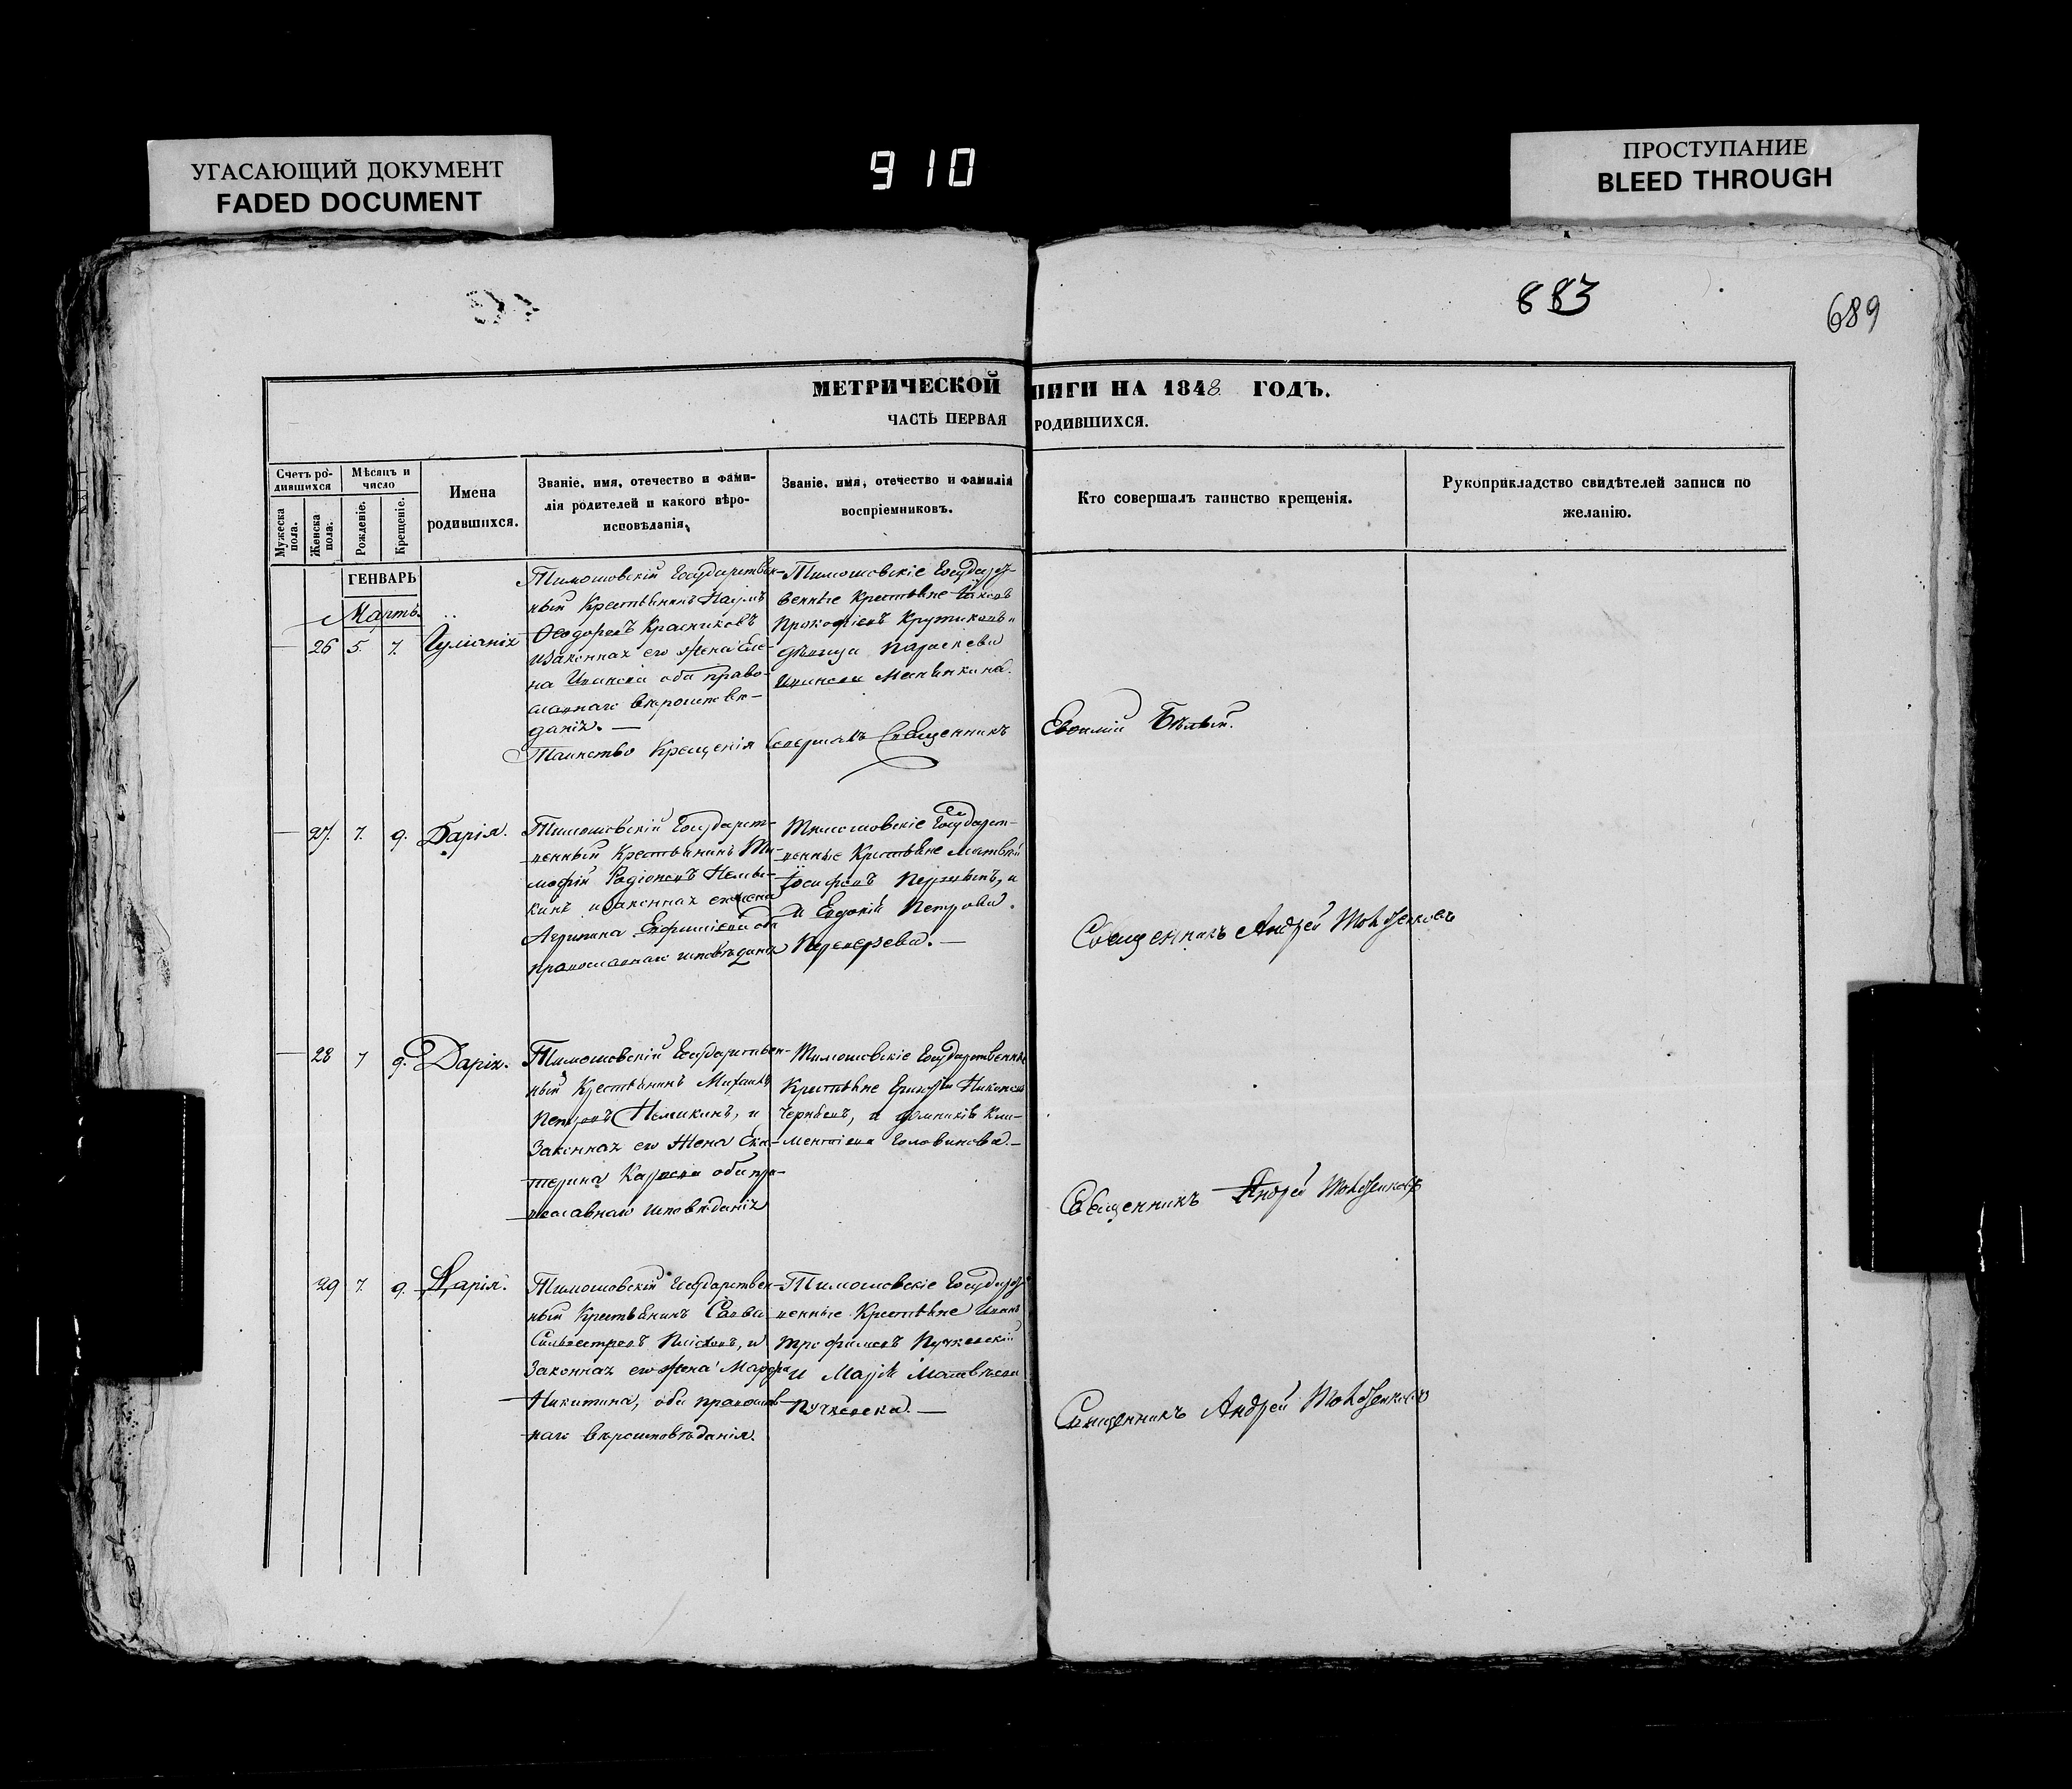 УГАСАЮЩИЙ ДОКУМЕНТ
FADED DOCUMENT
910
ПРОСТУПАНИЕ
BLEED THROUGH
883
689
МЕТРИЧЕСКОЙ НИГИ НА 1848 ГОДЪ.
ЧАСТЬ ПЕРВАЯ РОДИВШИХСЯ.
Счетъ ро-
дившихся
Мѣсяцъ и
число
Мужеска
пола.
Женска
пола.
Рожденіе.
Крещеніе.
Имена
родившихся.
Званіе, имя, отечество и фами-
лія родителей и какого вѣро-
исповѣданія.
Званіе, имя, отечество и фамилія
воспріемниковъ.
Кто совершалъ таинство крещенія.
Рукоприкладство свидѣтелей записи по
желанію.
ГЕНВАРЬ
Мартъ.
26 5. 7.
Тимошовскій Государствен-
ный Крестьянинъ Наумъ
Ѳеодоровъ Красниковъ
изаконная его жена Еле-
на Иванова оба право-
славнаго вѣроисповѣ-
данія.
Тимошовскіе Государст-
венные Крестьяне
Прокофіевъ
девица Параскева
Иванова
Таинство Крещенія Совершалъ Священникъ
Евѳимій Бѣлый.
27. 7. 9. Дарія.
Тимошовскій Государст-
венный Крестьянинъ Ти-
мофій Радіоновъ
кинъ изаконная его жена
Агрипина оба
православнаго исповѣданія
Тимошовскіе Государст-
венные Крестьяне Матвѣй
Іосифовъ
и Евдокія Петрова
Священникъ Андрей
28 7 9. Дарія.
Тимошовскій Государствен-
ный Крестьянинъ Михаилъ
Петровъ и
Законная его Жена Ека-
терина Карпова оба пра-
вославнаго исповѣданія
Тимошовскіе Государственные
Крестьяне
и Кли-
ментіева Головинова.
Священникъ Андрей
29 7. 9. Дарія.
Тимошовскій Государствен-
ный Крестьянинъ Савва
Сильвестровъ и
Законная его жена Марфа
Никитина, оба православ-
наго вѣроисповѣданія.
Тимошовскіе Государст-
венные Крестьяне Иванъ
Трофимовъ Пучковскій
и Марія Матвѣева
Священникъ Андрей